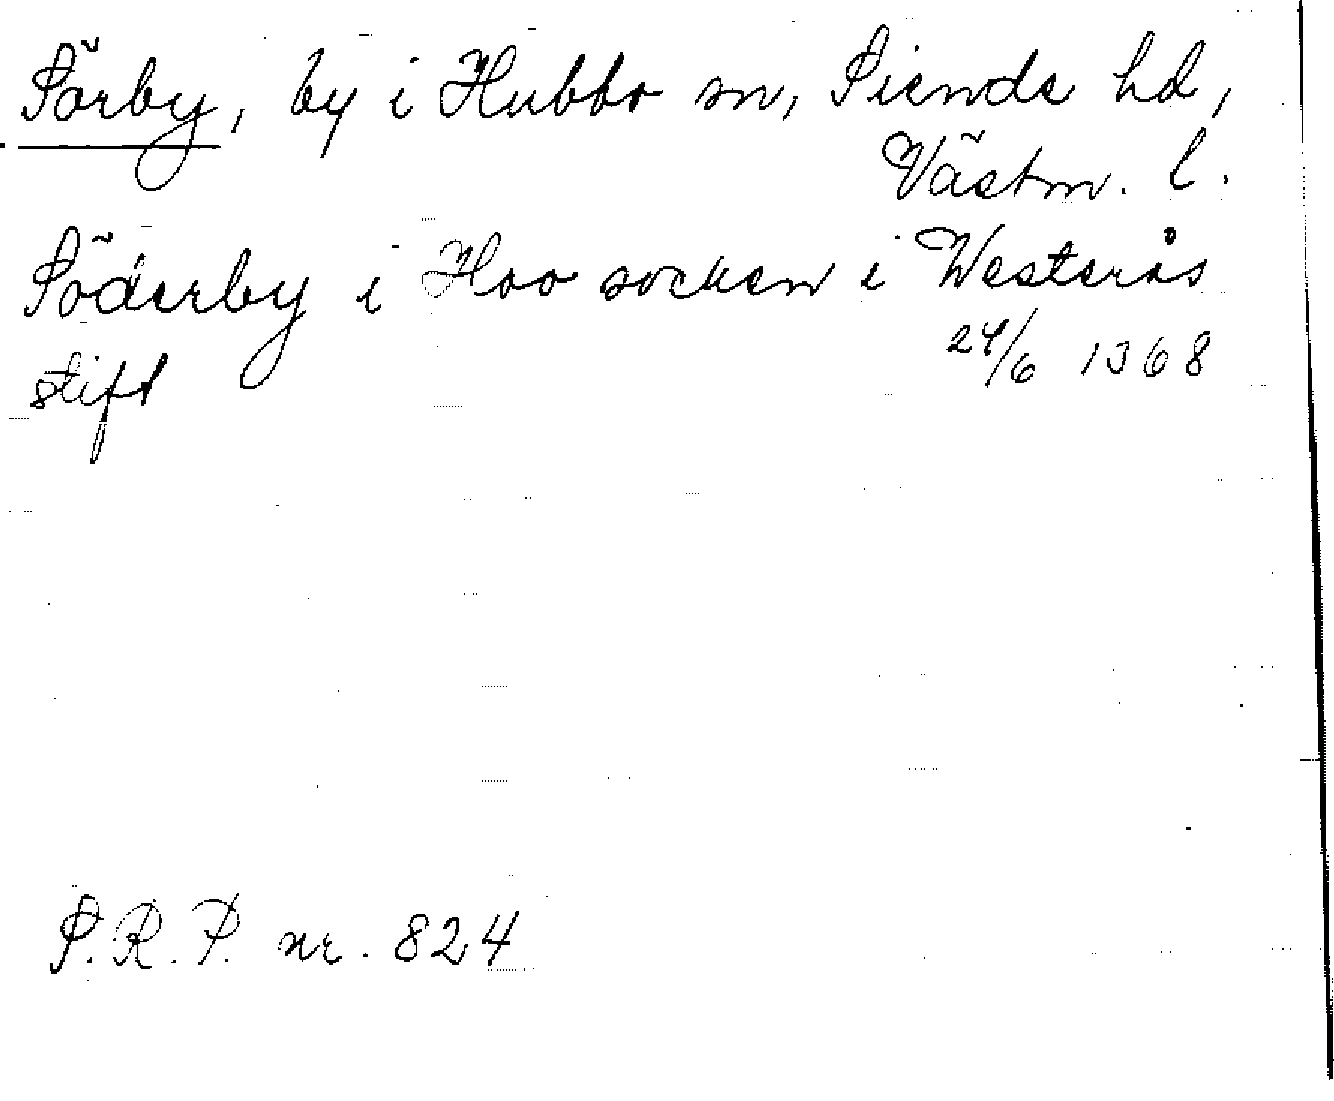 Sörby, by i Hubbo sn, Siende hd,
Västm. l.
Söderby i Hoo socken i Westerås
stift 24/6 1368
S.R.P. nr. 824